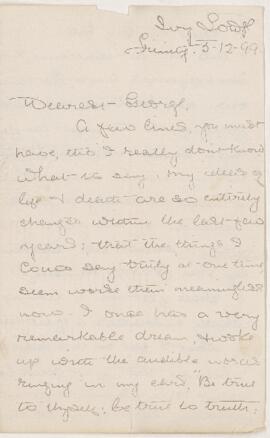 Ivy Lodge
5-12-99
Dearest George,
A few lines, you must
have, tho' I really don't know
what to say, my ideas of
life & death are so entirely
changed within the last few
years; that the things I
could say truly at one time
seem worse than meaningless
now. I once had a very
remarkable dream, & woke
up with the audible words
ringing in my ears, "Be true
to thyself; be true to truth;